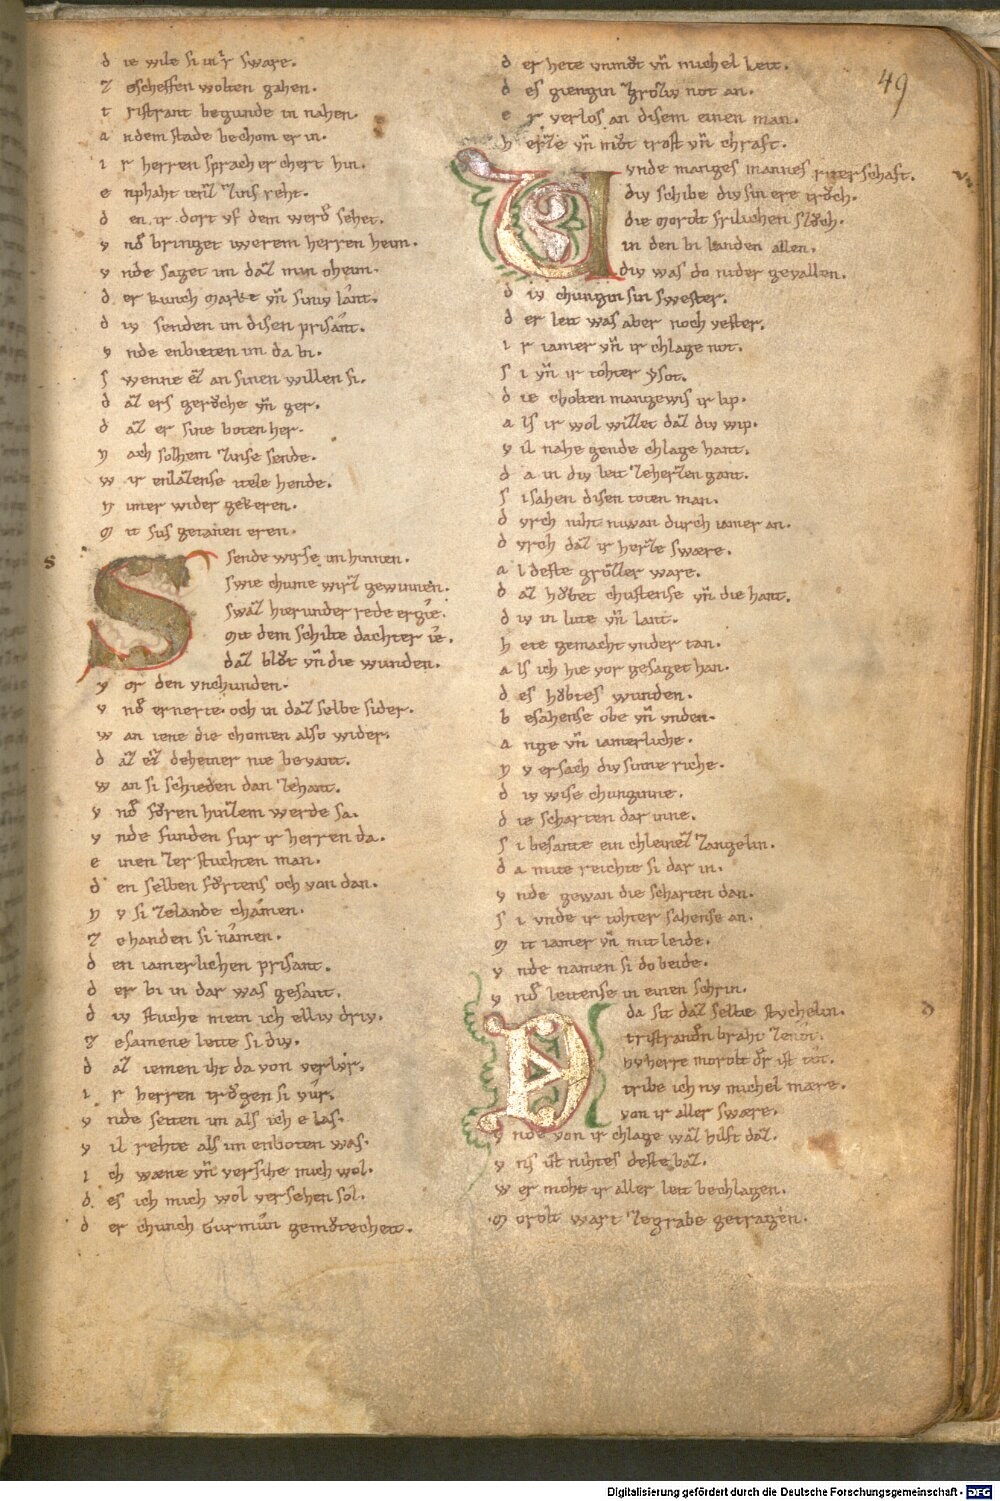 die wile si in ir sware.
zescheffen wolten gahen.
tristrant begunde in nahen.
an dem stade bechom er in.
ir herren sprach er chert hin.
enphaht iwerz zins reht.
den ir dort vf dem werde sehet.
vnde bringet iwerem herren heim.
vnde saget im daz min oheim.
der kunch Marke vñ siniv lant.
div senden im disen prisant.
vnde enbieten im da bi.
swenne ez an sinen willen si.
daz ers geruͦche vñ ger.
daz er sine boten her.
nach solhem zinse sende.
wir enlazense itele hende.
nimer wider gekeren.
mit sus getanen eren.
Sus sende wir se im hinnen.
swie chume wirz gewunnen.
swaz hier under rede ergie.
Mit dem schilte dachter ie.
daz bluͦt vñ die wunden.
vor den vnchunden.
vnd ernerte och in daz selbe sider.
wan iene die chomen also wider.
daz ez deheiner nie bevant.
wan si schieden dan zehant.
vnd fuͦren hinzem werde sa.
vnde funden fur ir herren da.
einen zerstuchten man.
den selben fuͦrtens och van dan.
nv si zelande chamen.
zehanden si namen.
den iamerlichen prisant.
der bi in dar was gesant.
div stuche mein ich elliv driv.
zesamene leite si div.
daz iemen iht da von verlur.
ir herren truͦgen si vur.
vnde seiten im als ich e las.
vil rehte als im enboten was.
ich wæne vñ versihe mich wol.
des ich mich wol versehen sol.
der chunch Gurmun gemuͦtecheit.
der hete vnmuͦt vñ michel leit.
des giengin grozlich not an.
er verlos an disem einen man.
herze vñ muͦt trost vñ chraft.
Vnde manges mannes ritterschaft.
div schibe div sin ere truͦch.
die Morolt frilichen sluͦch.
in den bi landen allen.
div was do nider gevallen.
div chungin sin swester.
der leit was aber noch vester.
ir iamer vñ ir chlage not.
si vñ ir tohter ysot.
die cholten mangewis ir lip.
als ir wol wizzet daz div wip.
vil nahe gende chlage hant.
da in div leit zeherzen gant.
si sahen disen toten man.
dvrch niht niwan durch iamer an.
dvrch daz ir herze swære.
al deste grozzer ware.
daz houbet chustense vñ die hant.
div in lute vñ lant.
hete gemacht vnder tan.
als ich hie vor gesaget han.
des houbtes wunden.
besahense obe vñ vnden.
ange vñ iamerliche.
nv ersach div sinne riche.
div wise chunginne.
die scharten dar inne.
si besante ein chleinez zangelin.
da mite reichte si dar in.
vnde gewan die scharten dan.
si vnde ir tohter sahense an.
mit iamer vñ mit leide.
vnde namen si do beide.
vnd leitense in einen schrin.
Da sit daz selbe stvchelin.
tristranden braht zenot.
nv herre morolt der ist tot.
tribe ich nv michel mære.
von ir aller swære.
vnde von ir chlage waz hilft daz.
vns ist nihtes deste baz.
wer moht ir aller leit bechlagen.
Morolt wart zegrabe getragen.
49